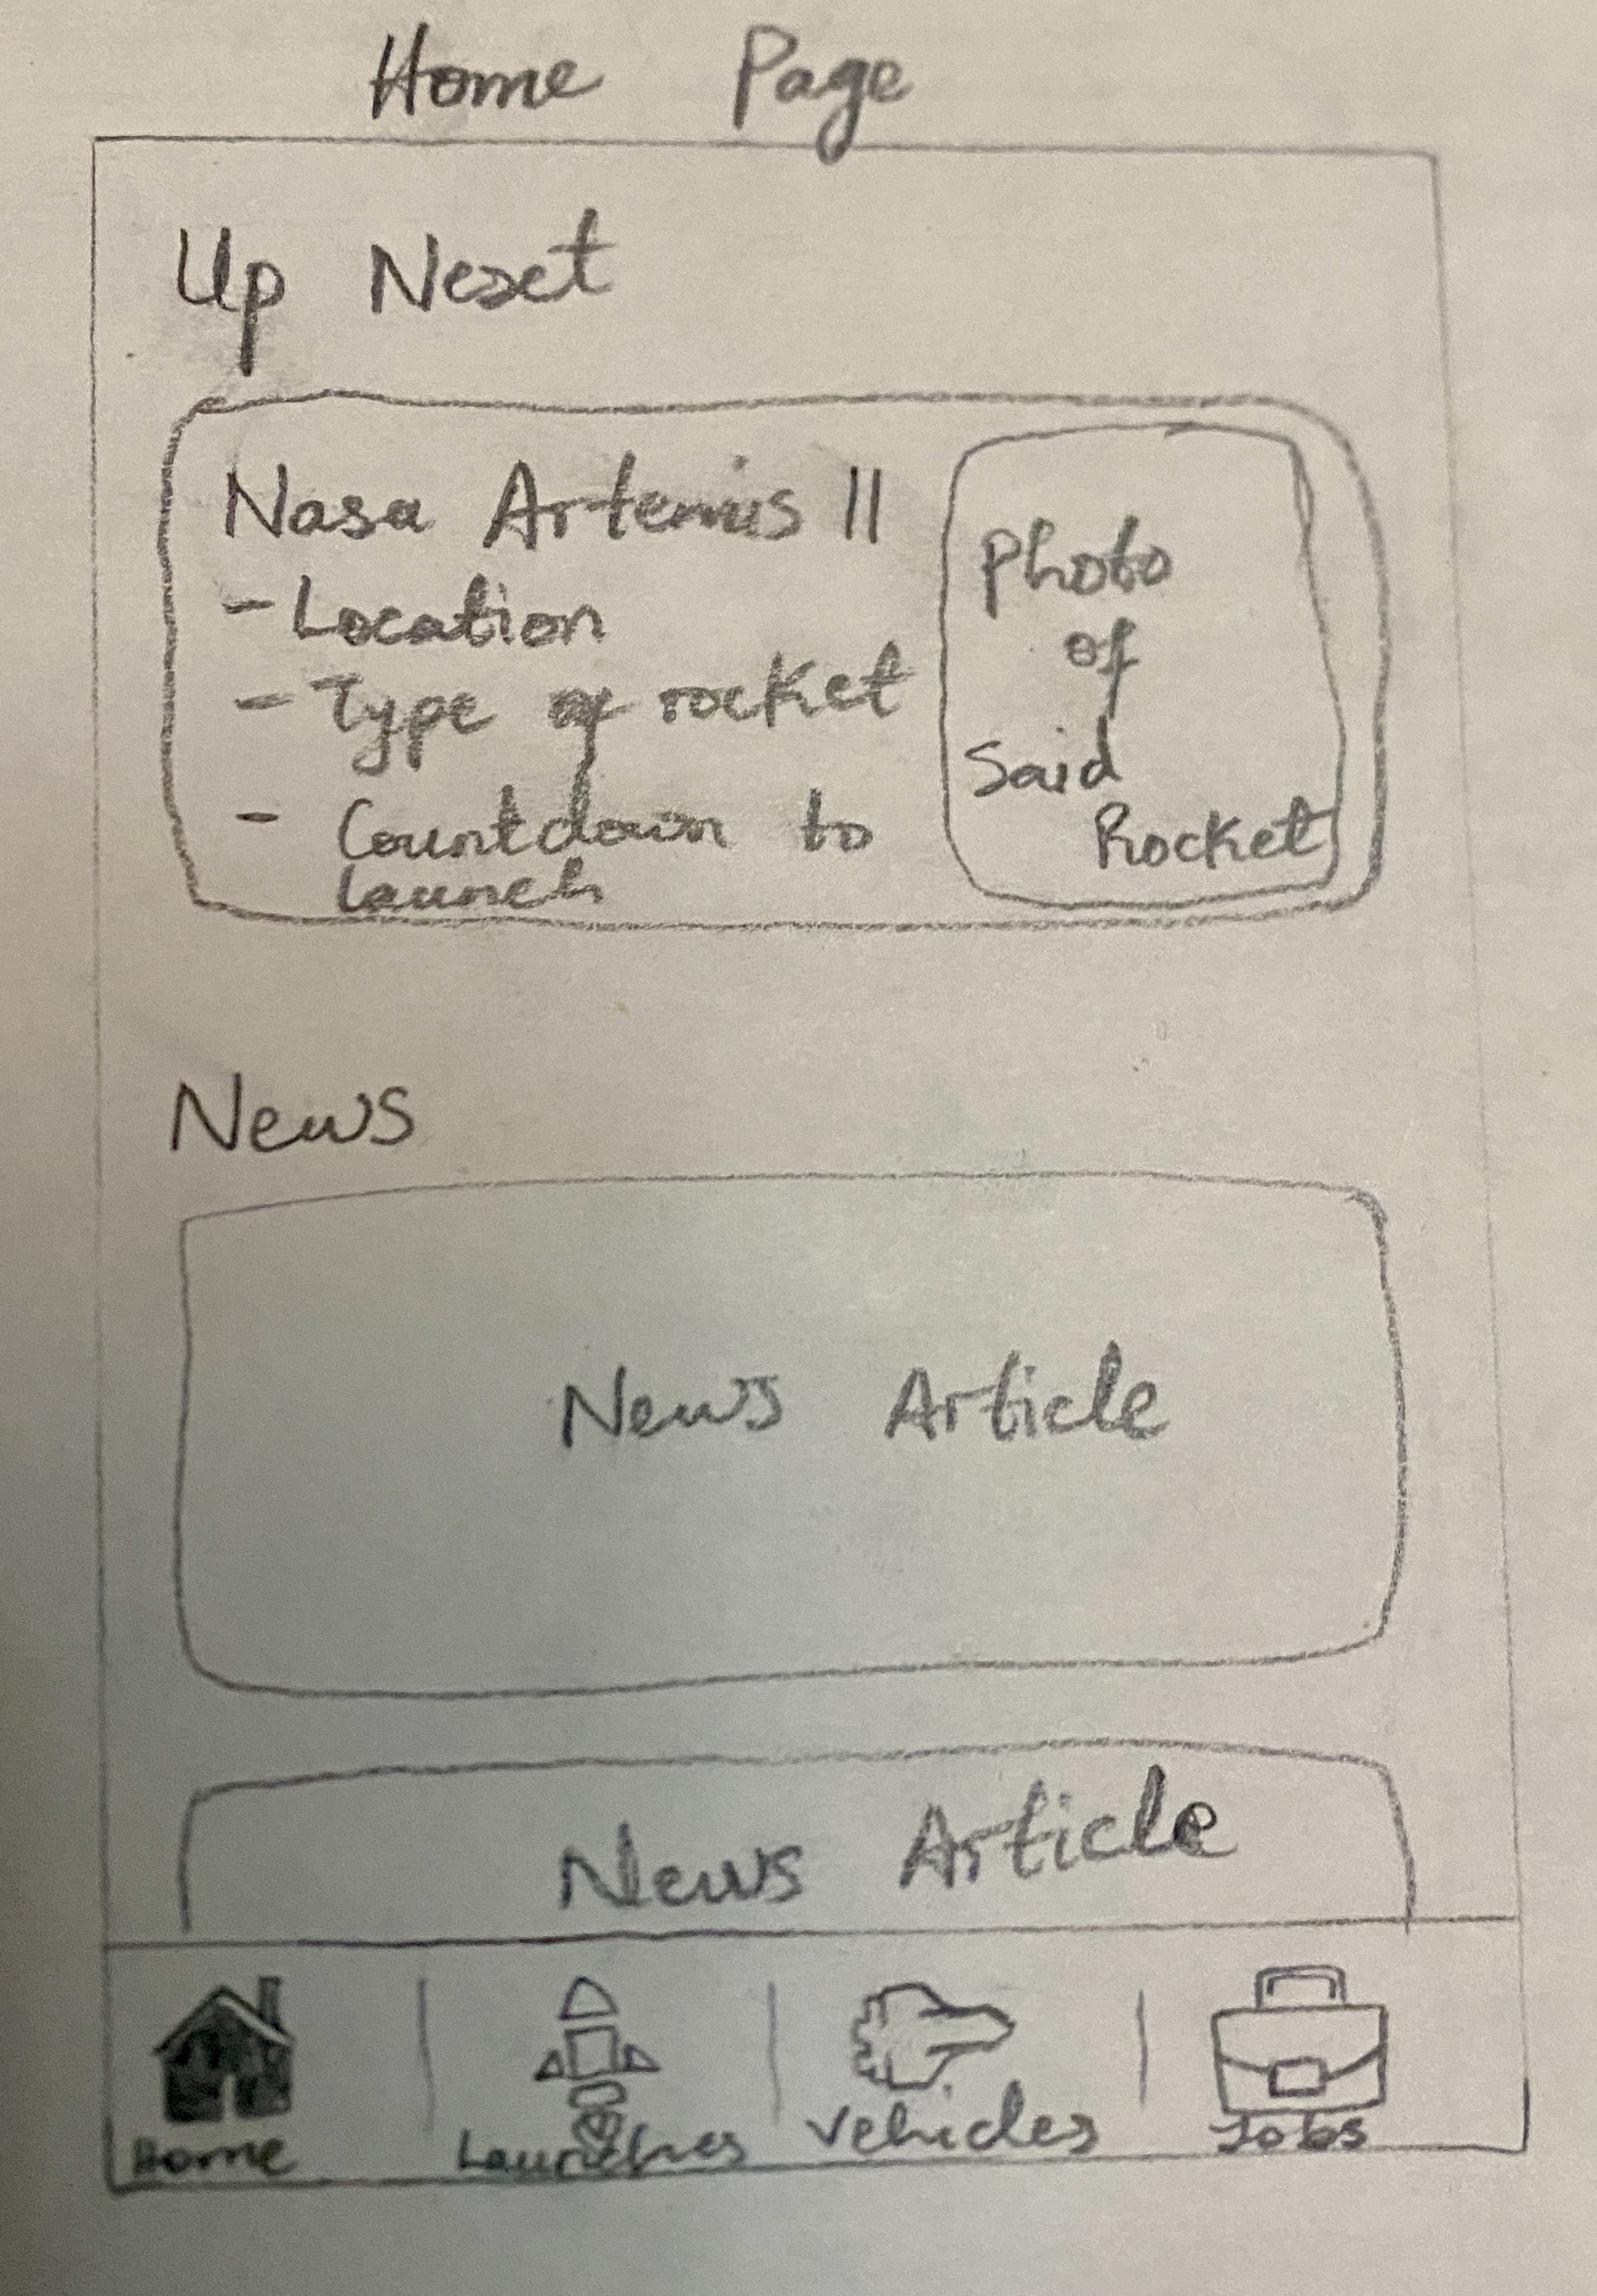 Home Page
Up Next
Nasa Artemis II
- Location
- Type of rocket
- Countdown to
launch
Photo
of
Said
Rocket
News
News Article
News Article
Home
Launches
Vehicles
Jobs